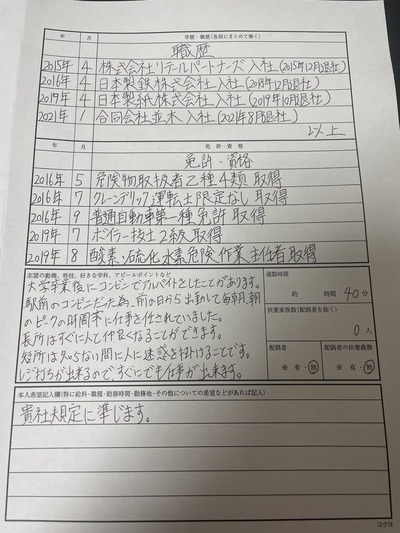 年 月 学歴・職歴(各別にまとめて書く)
職歴
2015年 4 株式会社リテールパートナーズ入社(2015年12月退社)
2016年 4 日本製鉄株式会社入社(2018年12月退社)
2019年 4 日本製紙株式会社入社(2019年10月退社)
2021年 1 合同会社並木入社(2021年8月退社)
以上
年 月 免許・資格
免許・資格
2016年 5 危険物取扱者乙種4類取得
2016年 7 クレーンデリック運転士限定なし取得
2016年 9 普通自動車第一種免許取得
2019年 7 ボイラー技士2級取得
2019年 8 酸素・硫化水素危険作業主任者取得
志望の動機、特技、好きな学科、アピールポイントなど
大学卒業後にコンビニでアルバイトをしたことがあります。
駅前のコンビニだった為、前の日から出勤して毎朝、朝
のピークの時間帯に仕事を任されていました。
長所はすぐに人と仲良くなることができます。
短所は知らない間に人に迷惑を掛けることです。
レジ打ちが出来るのですぐにでも仕事が出来ます。
通勤時間
約 時間 40分
扶養家族数(配偶者を除く)
0人
配偶者
※ 有・無
配偶者の扶養義務
※ 有・無
本人希望記入欄(特に給料・職種・勤務時間・勤務地・その他についての希望などがあれば記入)
貴社規定に準じます。
コクヨ